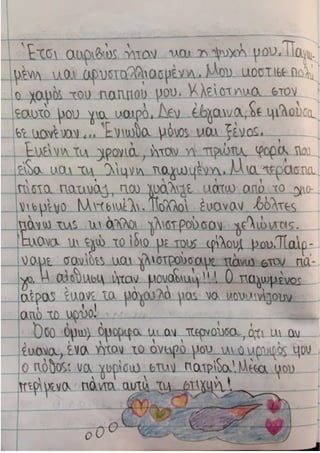 Έτσι ακριβώς ήταν και η ψυχή μου. Παγω-
μένη και κρυσταλλιασμένη. Μου κόστισε πολύ
ο χαμός του παππού μου. Κλείστηκα στον
εαυτό μου για καιρό. Δεν έβγαινα, δε μιλούσα
σε κανέναν... Ένιωθα μόνος και ξένος.
Εκείνη τη χρονιά, ήταν η πρώτη φορά που
είδα και τη λίμνη παγωμένη. Μια τεράστια
πίστα πατινάζ, που γυάλιζε κάτω από το χιο-
νισμένο Μιτσικέλι. Πολλοί έκαναν βόλτες
πάνω της κι άλλοι γλιστρούσαν γελώντας.
Έκανα κι εγώ το ίδιο με τους φίλους μου. Παίρ-
ναμε σανίδες και γλιστρούσαμε πάνω στον πά-
γο. Η αίσθηση ήταν μοναδική!!! Ο παγωμένος
αέρας έκανε τα μάγουλά μας να κοκκινίζουν
από το κρύο!
Όσο όμως όμορφα κι αν περνούσα, ότι κι αν
έκανα, ένα ήταν το όνειρό μου κι ο κρυφός μου
ο πόθος: να γυρίσω στην πατρίδα! Μέσα μου
περίμενα πάντα αυτή τη στιγμή!